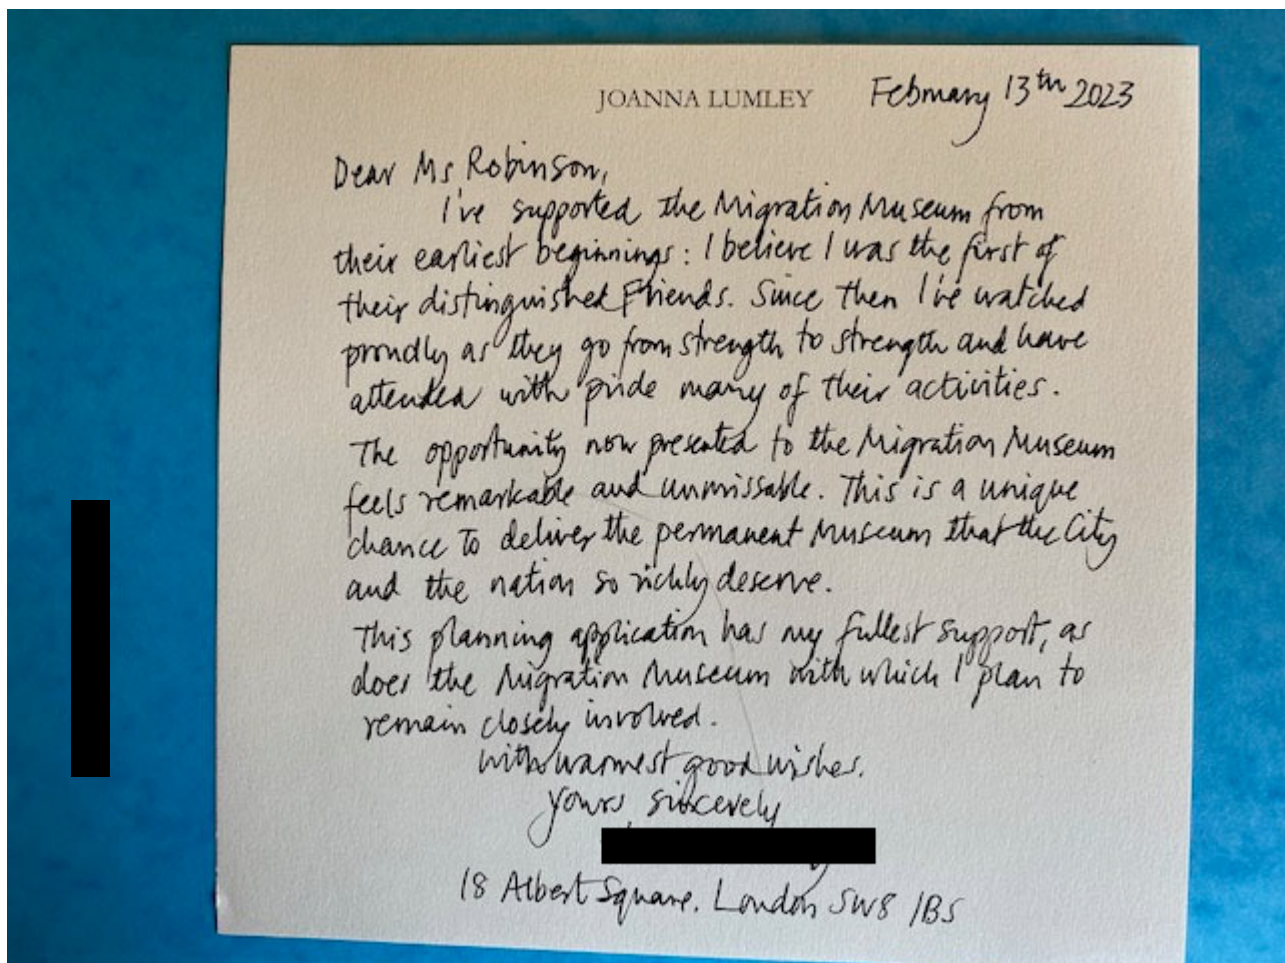 JOANNA LUMLEY
February 13th 2023
Dear Ms Robinson,
I've supported the Migration Museum from
their earliest beginnings: I believe I was the first of
their distinguished Friends. Since then I've watched
proudly as they go from strength to strength and have
attended with pride many of their activities.
The opportunity now presented to the Migration Museum
feels remarkable and unmissable. This is a unique
chance to deliver the permanent Museum that the City
and the nation so richly deserve.
This planning application has my fullest support, as
does the Migration Museum with which I plan to
remain closely involved.
With warmest good wishes.
Yours, sincerely
18 Albert Square. London SW8 1BS